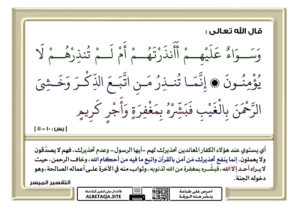 قال الله تعالى :
وَسَوَاءٌ عَلَيْهِمْ أَأَنذَرْتَهُمْ أَمْ لَمْ تُنذِرْهُمْ لَا
يُؤْمِنُونَ ۞ إِنَّمَا تُنذِرُ مَنِ اتَّبَعَ الذِّكْرَ وَخَشِيَ
الرَّحْمَنَ بِالْغَيْبِ فَبَشِّرْهُ بِمَغْفِرَةٍ وَأَجْرٍ كَرِيمٍ
[ يس : ١٠ - ١١ ]
أي يستوي عند هؤلاء الكفار المعاندين تحذيرك لهم -أيها الرسول- وعدم تحذيرك، فهم لا يصدِّقون
ولا يعملون. إنما ينفع تحذيرك مَن آمن بالقرآن واتبع ما فيه من أحكام الله، وخاف الرحمن، حيث
لا يراه أحد إلا الله، فبشِّره بمغفرة من الله لذنوبه، وثواب منه في الآخرة على أعماله الصالحة، وهو
دخوله الجنة.
التفسير الميسر
ALBETAQA.SITE
احرص على طباعة
ونشر هذه الورقة